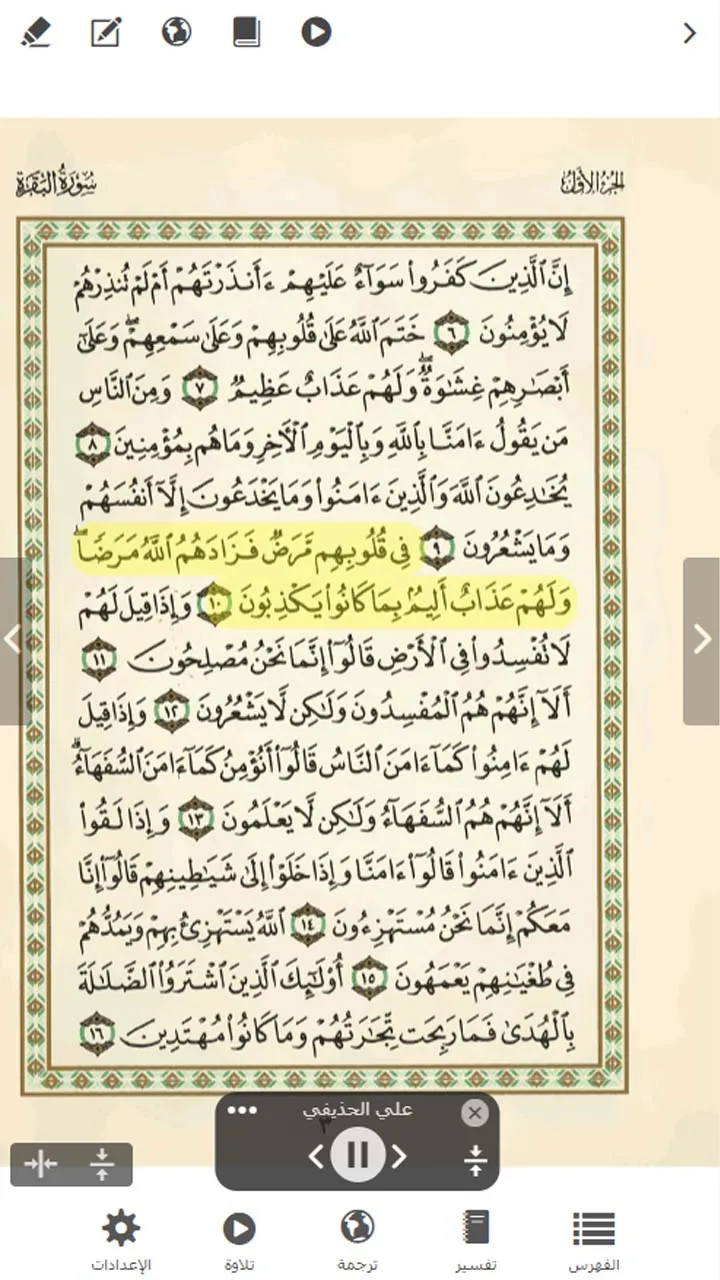 سُورَةُ البَقَرَةِ
الجُزءُ الأَوَّلُ
إِنَّ ٱلَّذِينَ كَفَرُواْ سَوَآءٌ عَلَيۡهِمۡ ءَأَنذَرۡتَهُمۡ أَمۡ لَمۡ تُنذِرۡهُمۡ
لَا يُؤۡمِنُونَ ٦ خَتَمَ ٱللَّهُ عَلَىٰ قُلُوبِهِمۡ وَعَلَىٰ سَمۡعِهِمۡۖ وَعَلَىٰٓ
أَبۡصَٰرِهِمۡ غِشَٰوَةٞۖ وَلَهُمۡ عَذَابٌ عَظِيمٞ ٧ وَمِنَ ٱلنَّاسِ
مَن يَقُولُ ءَامَنَّا بِٱللَّهِ وَبِٱلۡيَوۡمِ ٱلۡأٓخِرِ وَمَا هُم بِمُؤۡمِنِينَ ٨
يُخَٰدِعُونَ ٱللَّهَ وَٱلَّذِينَ ءَامَنُواْ وَمَا يَخۡدَعُونَ إِلَّآ أَنفُسَهُمۡ
وَمَا يَشۡعُرُونَ ٩ فِي قُلُوبِهِم مَّرَضٞ فَزَادَهُمُ ٱللَّهُ مَرَضٗاۖ
وَلَهُمۡ عَذَابٌ أَلِيمُۢ بِمَا كَانُواْ يَكۡذِبُونَ ١٠ وَإِذَا قِيلَ لَهُمۡ
لَا تُفۡسِدُواْ فِي ٱلۡأَرۡضِ قَالُوٓاْ إِنَّمَا نَحۡنُ مُصۡلِحُونَ ١١
أَلَآ إِنَّهُمۡ هُمُ ٱلۡمُفۡسِدُونَ وَلَٰكِن لَّا يَشۡعُرُونَ ١٢ وَإِذَا قِيلَ
لَهُمۡ ءَامِنُواْ كَمَآ ءَامَنَ ٱلنَّاسُ قَالُوٓاْ أَنُؤۡمِنُ كَمَآ ءَامَنَ ٱلسُّفَهَآءُۗ
أَلَآ إِنَّهُمۡ هُمُ ٱلسُّفَهَآءُ وَلَٰكِن لَّا يَعۡلَمُونَ ١٣ وَإِذَا لَقُواْ
ٱلَّذِينَ ءَامَنُواْ قَالُوٓاْ ءَامَنَّا وَإِذَا خَلَوۡاْ إِلَىٰ شَيَٰطِينِهِمۡ قَالُوٓاْ إِنَّا
مَعَكُمۡ إِنَّمَا نَحۡنُ مُسۡتَهۡزِءُونَ ١٤ ٱللَّهُ يَسۡتَهۡزِئُ بِهِمۡ وَيَمُدُّهُمۡ
فِي طُغۡيَٰنِهِمۡ يَعۡمَهُونَ ١٥ أُوْلَٰٓئِكَ ٱلَّذِينَ ٱشۡتَرَوُاْ ٱلضَّلَٰلَةَ
بِٱلۡهُدَىٰ فَمَا رَبِحَت تِّجَٰرَتُهُمۡ وَمَا كَانُواْ مُهۡتَدِينَ ١٦
علي الحذيفي
٣
الفهرس
تفسير
ترجمة
تلاوة
الإعدادات